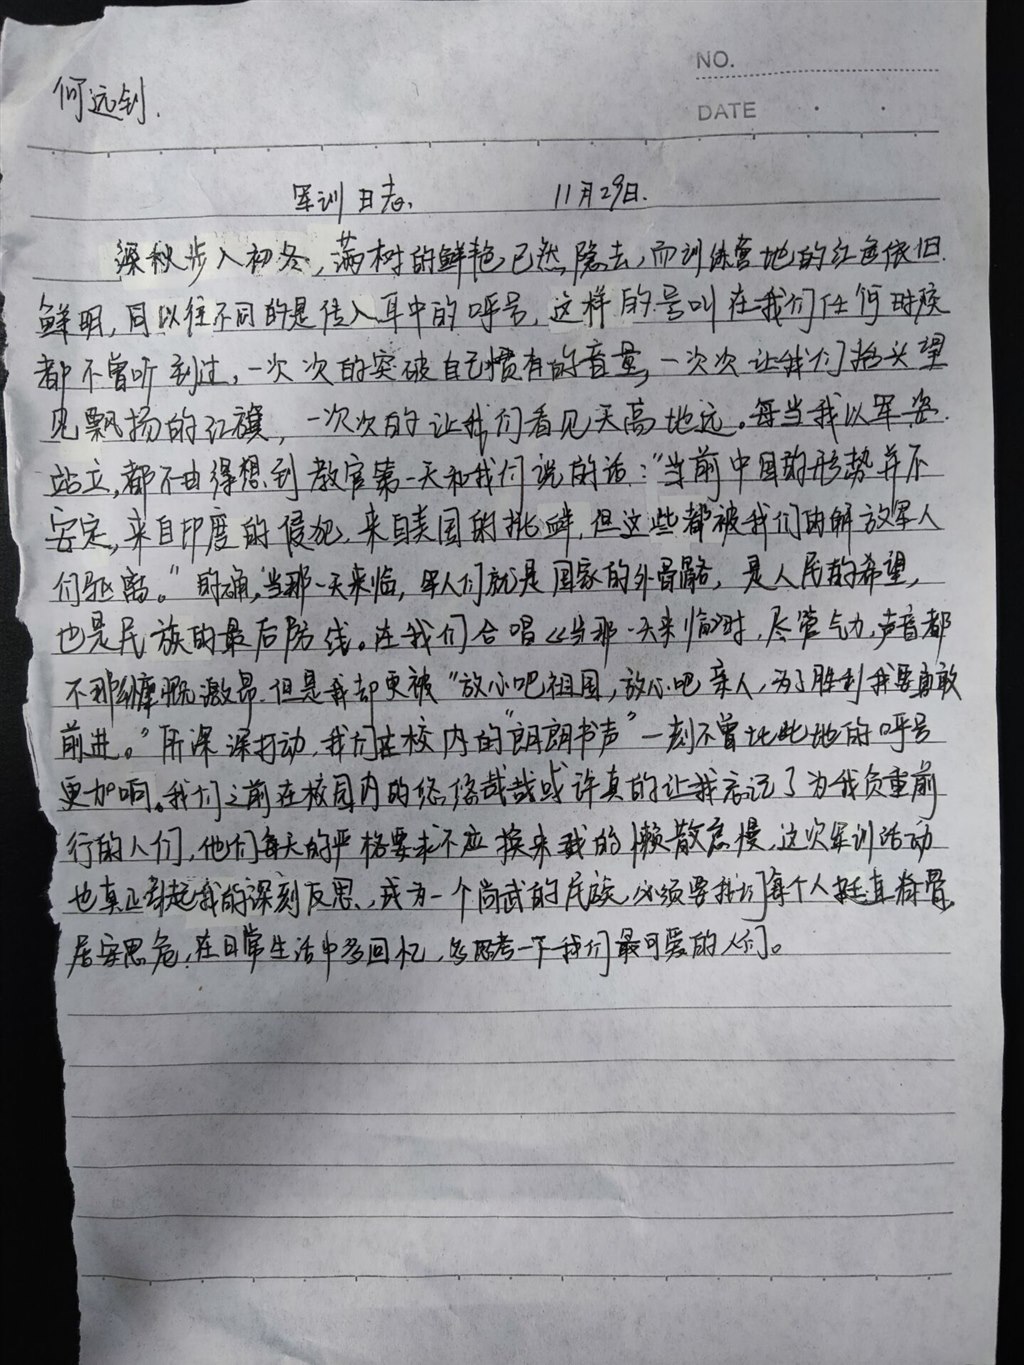 NO.
何远钊.
DATE
军训日志. 11月29日.
深秋步入初冬，满树的鲜艳已然隐去，而训练营地的红色依旧
鲜明，同以往不同的是传入耳中的呼号，这样的号叫在我们任何时候
都不曾听到过，一次次的突破自己惯有的音量，一次次让我们抬头望
见飘扬的红旗，一次次的让我们看见天高地远。每当我以军姿
站立，都不由得想到教官第一天和我们说的话：“当前中国的形势并不
安定，来自印度的侵犯，来自美国的挑衅，但这些都被我们的解放军人
们驱离。”的确，当那一天来临，军人们就是国家的外骨骼，是人民的希望，
也是民族的最后防线。在我们合唱《当那一天来临》时，尽管气力，声音都
不那么慷慨激昂，但是我却更被“放心吧祖国，放心吧亲人，为了胜利我要勇敢
前进。”所深深打动，我们在校内的“朗朗书声”一刻不曾比此地的呼号
更加响。我们之前在校园内的或许真的让我忘记了为我负重前
行的人们，他们每天的严格要求不应换来我的懒散怠慢，这次军训活动
也真正引起我的深刻反思，成为一个尚武的民族，必须要我们每个人挺直脊骨，
居安思危，在日常生活中多回忆，多思考一下我们最可爱的人们。